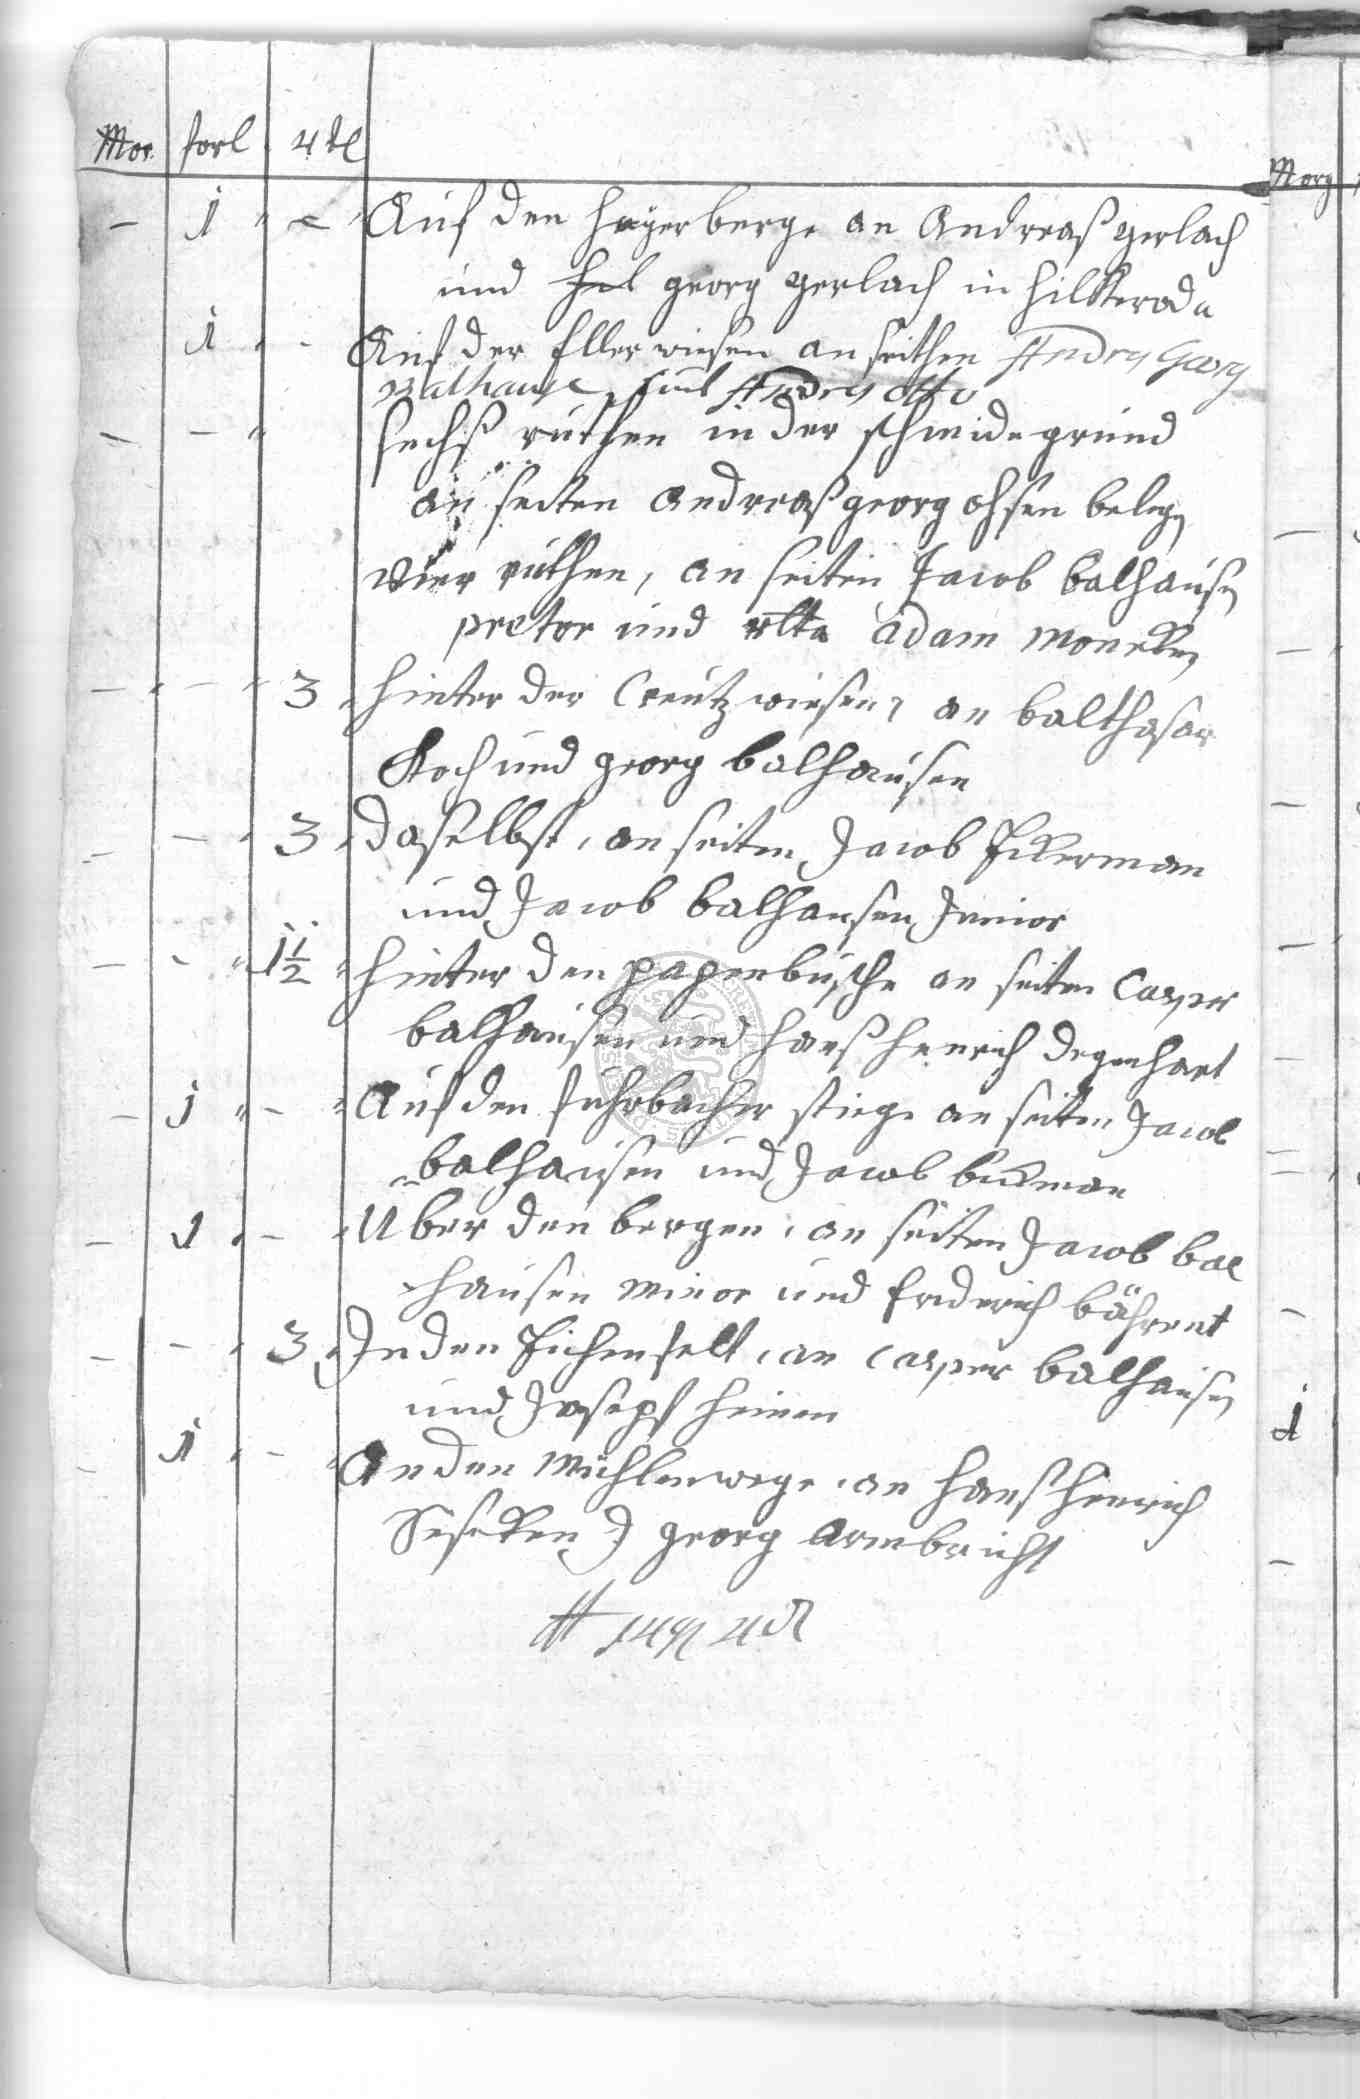 Mor. forl 4tl
– 1 – Auf den Heyerberge an Andreaß gerlach
und georg gerlach in hilkeroda
1 - Auf der Ellerwiesen an seithen Andres Georg
Balhause und Andres Otto
– – sechß ruthen in der schmidegrund
an seiten andreaß georg ohsen belegen
Vier ruthen, an seiten Jacob balhausen
pretor und adam moneken
– – 3 hinter der Creutzwiesen, an balthasar
Koch und georg balhausen
– – 3 daselbst, an seiten Jacob Ickerman
und Jacob balhausen Junior
– – 1 1/2 hinter den papenbusche an seiten Casper
balhausen und hanß henrich degenhart
– 1 – Auf den fuhrbacher stiege an seiten Jacob
balhausen und Jacob
– 1 – Uber den bergen, an seiten Jacob bal
hausen minor und friderich bährent
– – 3 In den Eichenfelt, an Casper balhausen
und Joseph heinen
– 1 – An den Mühlenwege, an hanß hinrich
georg armbricht
Morg